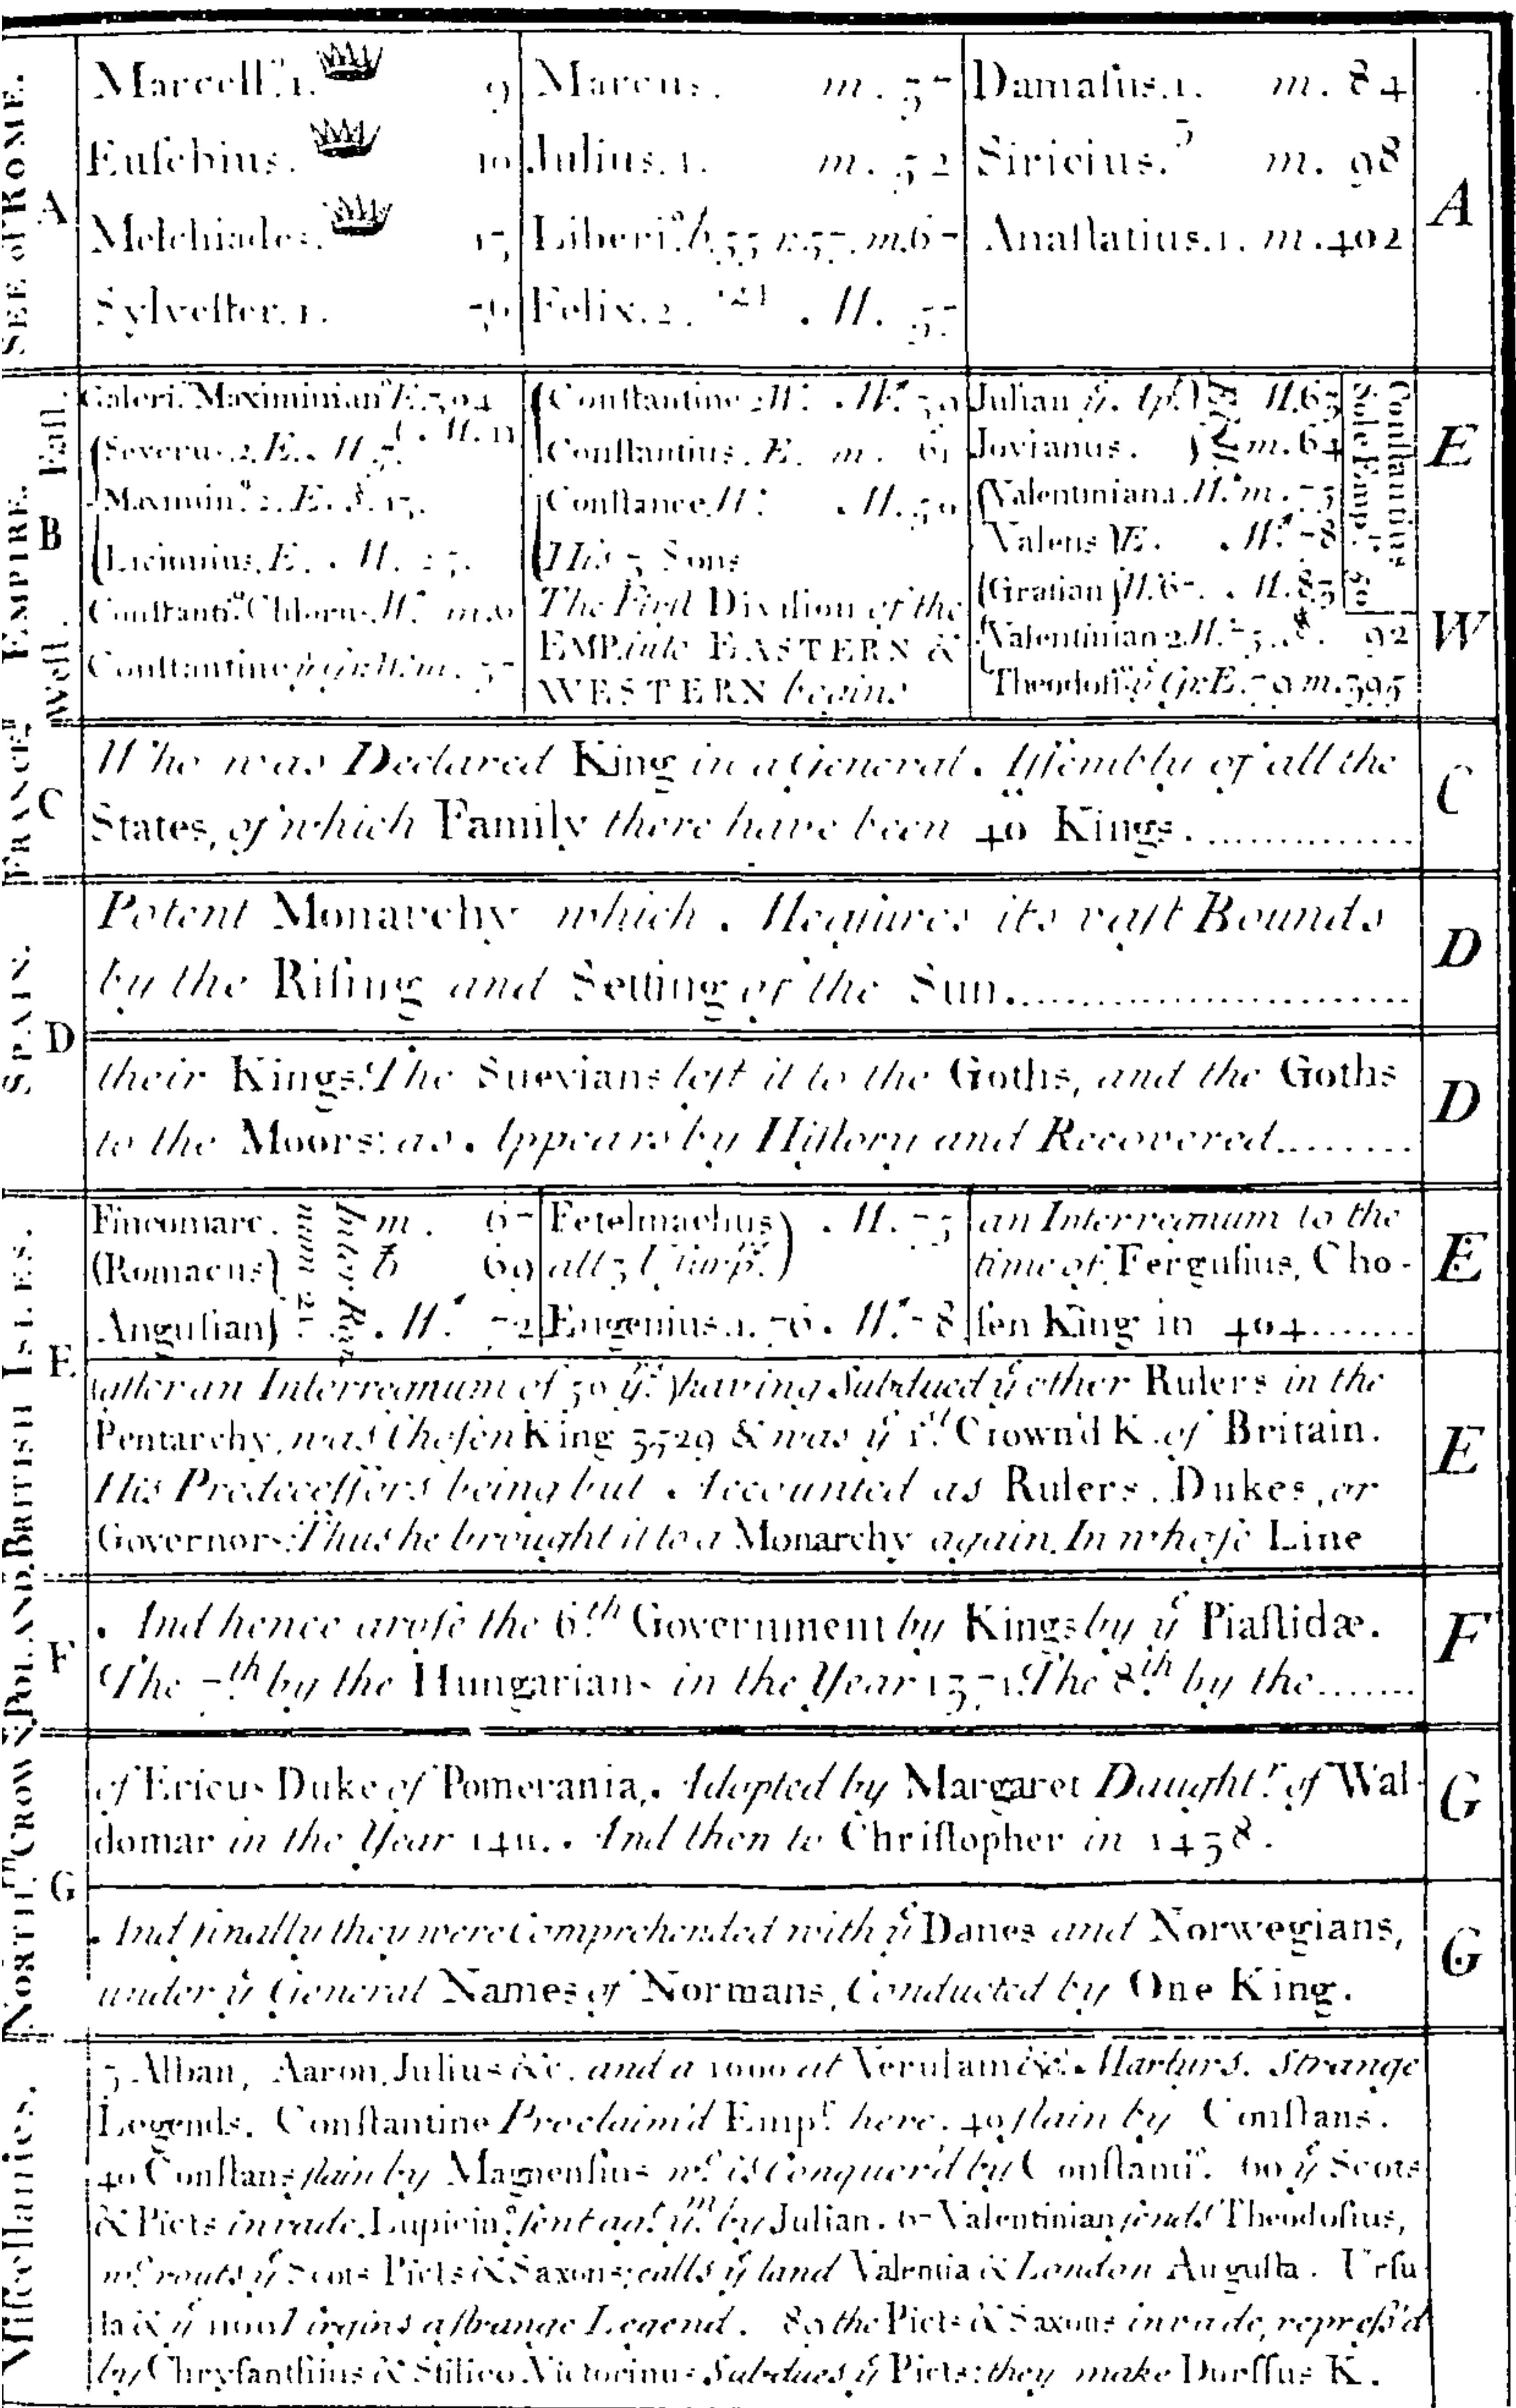 SEE of ROME.
A
Marcell.⁹ 1. 9
Eusebius. 10
Melchiades. 13
Sylvester. 1. 36
Marcus. m. 37
Julius. 1. m. 52
Liberi.⁹ b. 55 r. 57. m. 67
Felix. 2. M. 57
Damasus. 1. m. 84
Siricius. m. 98
Anastatius. 1. m. 402
A
EMPIRE.
East.
West.
B
Galeri.⁹ Maximinian⁹ E. 304
Severus. 2. E. M. 7.
Maximin⁹ 2. E. 13.
Licinnius. E. M. 23.
Constanti.⁹ Chlorus. W. m. 6
Constantine W. m. 37
Constantine 2 W. M. 39
Constantius. E. m. 61
Constance W. M. 50
His 3 Sons
The First Division of the
EMP. into EASTERN &
WESTERN begins
Julian yᵉ Ap. M. 63
Jovianus. m. 64
Valentiniana. W. m. 75
Valens E. M. 78
Gratian W. 67. M. 83
Valentinian 2 W. 75. 92
Theodosi⁹ yᵉ Gr. E. 79 m. 395
Constantius
Sole Emp.
E
W
FRANCE
C
Who was Declared King in a General Assembly of all the
States, of which Family there have been 40 Kings.
C
SPAIN.
D
Potent Monarchy which Measures its vast Bounds
by the Rising and Setting of the Sun.
D
their Kings. The Suevians left it to the Goths, and the Goths
to the Moors: as Appears by History and Recovered
D
BRITISH ISLES.
E
Fincomarc. m. 67
(Romacus) 69
Angusian) M. 72
Fetelmachus) M. 75
all 3 Usurp.
Eugenius. 1. 76. M. 78
an Interregnum to the
time of Fergusius, Cho-
sen King in 404
E
(after an Interregnum of 50 yʳˢ) having Subdued yᵉ other Rulers in the
Pentarchy, was Chosen King 3529 & was yᵉ 1ˢᵗ Crown'd K. of Britain.
His Predecessors being but Accounted as Rulers, Dukes, or
Governors. Thus he brought it to a Monarchy again. In whose Line
E
POLAND.
F
And hence arose the 6.ᵗʰ Government by Kings by yᵉ Piastidæ.
The 7.ᵗʰ by the Hungarians in the Year 1371. The 8.ᵗʰ by the
F
NORTH.ʳⁿ CROWNS
G
of Ericus Duke of Pomerania, Adopted by Margaret Daught.ʳ of Wal-
domar in the Year 1411. And then to Christopher in 1438.
G
And finally they were Comprehended with yᵉ Danes and Norwegians,
under yᵉ General Names of Normans, Conducted by One King.
G
Miscellanies.
3 Alban, Aaron, Julius &c. and a 1000 at Verulam &c. Martyrs. Strange
Legends. Constantine Proclaim'd Emp.ʳ here. 40 slain by Constans.
40 Constans slain by Magnensius wᶜ is Conquer'd by Constanti⁹. 60 yᵉ Scots
& Picts invade, Lupicin⁹ sent agᵗ yᵐ by Julian. 67 Valentinian sends Theodosius,
wᶜ routs yᵉ Scots Picts & Saxons; calls yᵉ land Valentia & London Augusta. Ursu-
la & yᵉ 11001 irgins a strange Legend. 89 the Picts & Saxons invade, repress'd
by Chrysanthius & Stilico. Victorinus Subdues yᵉ Picts: they make Durssus K.